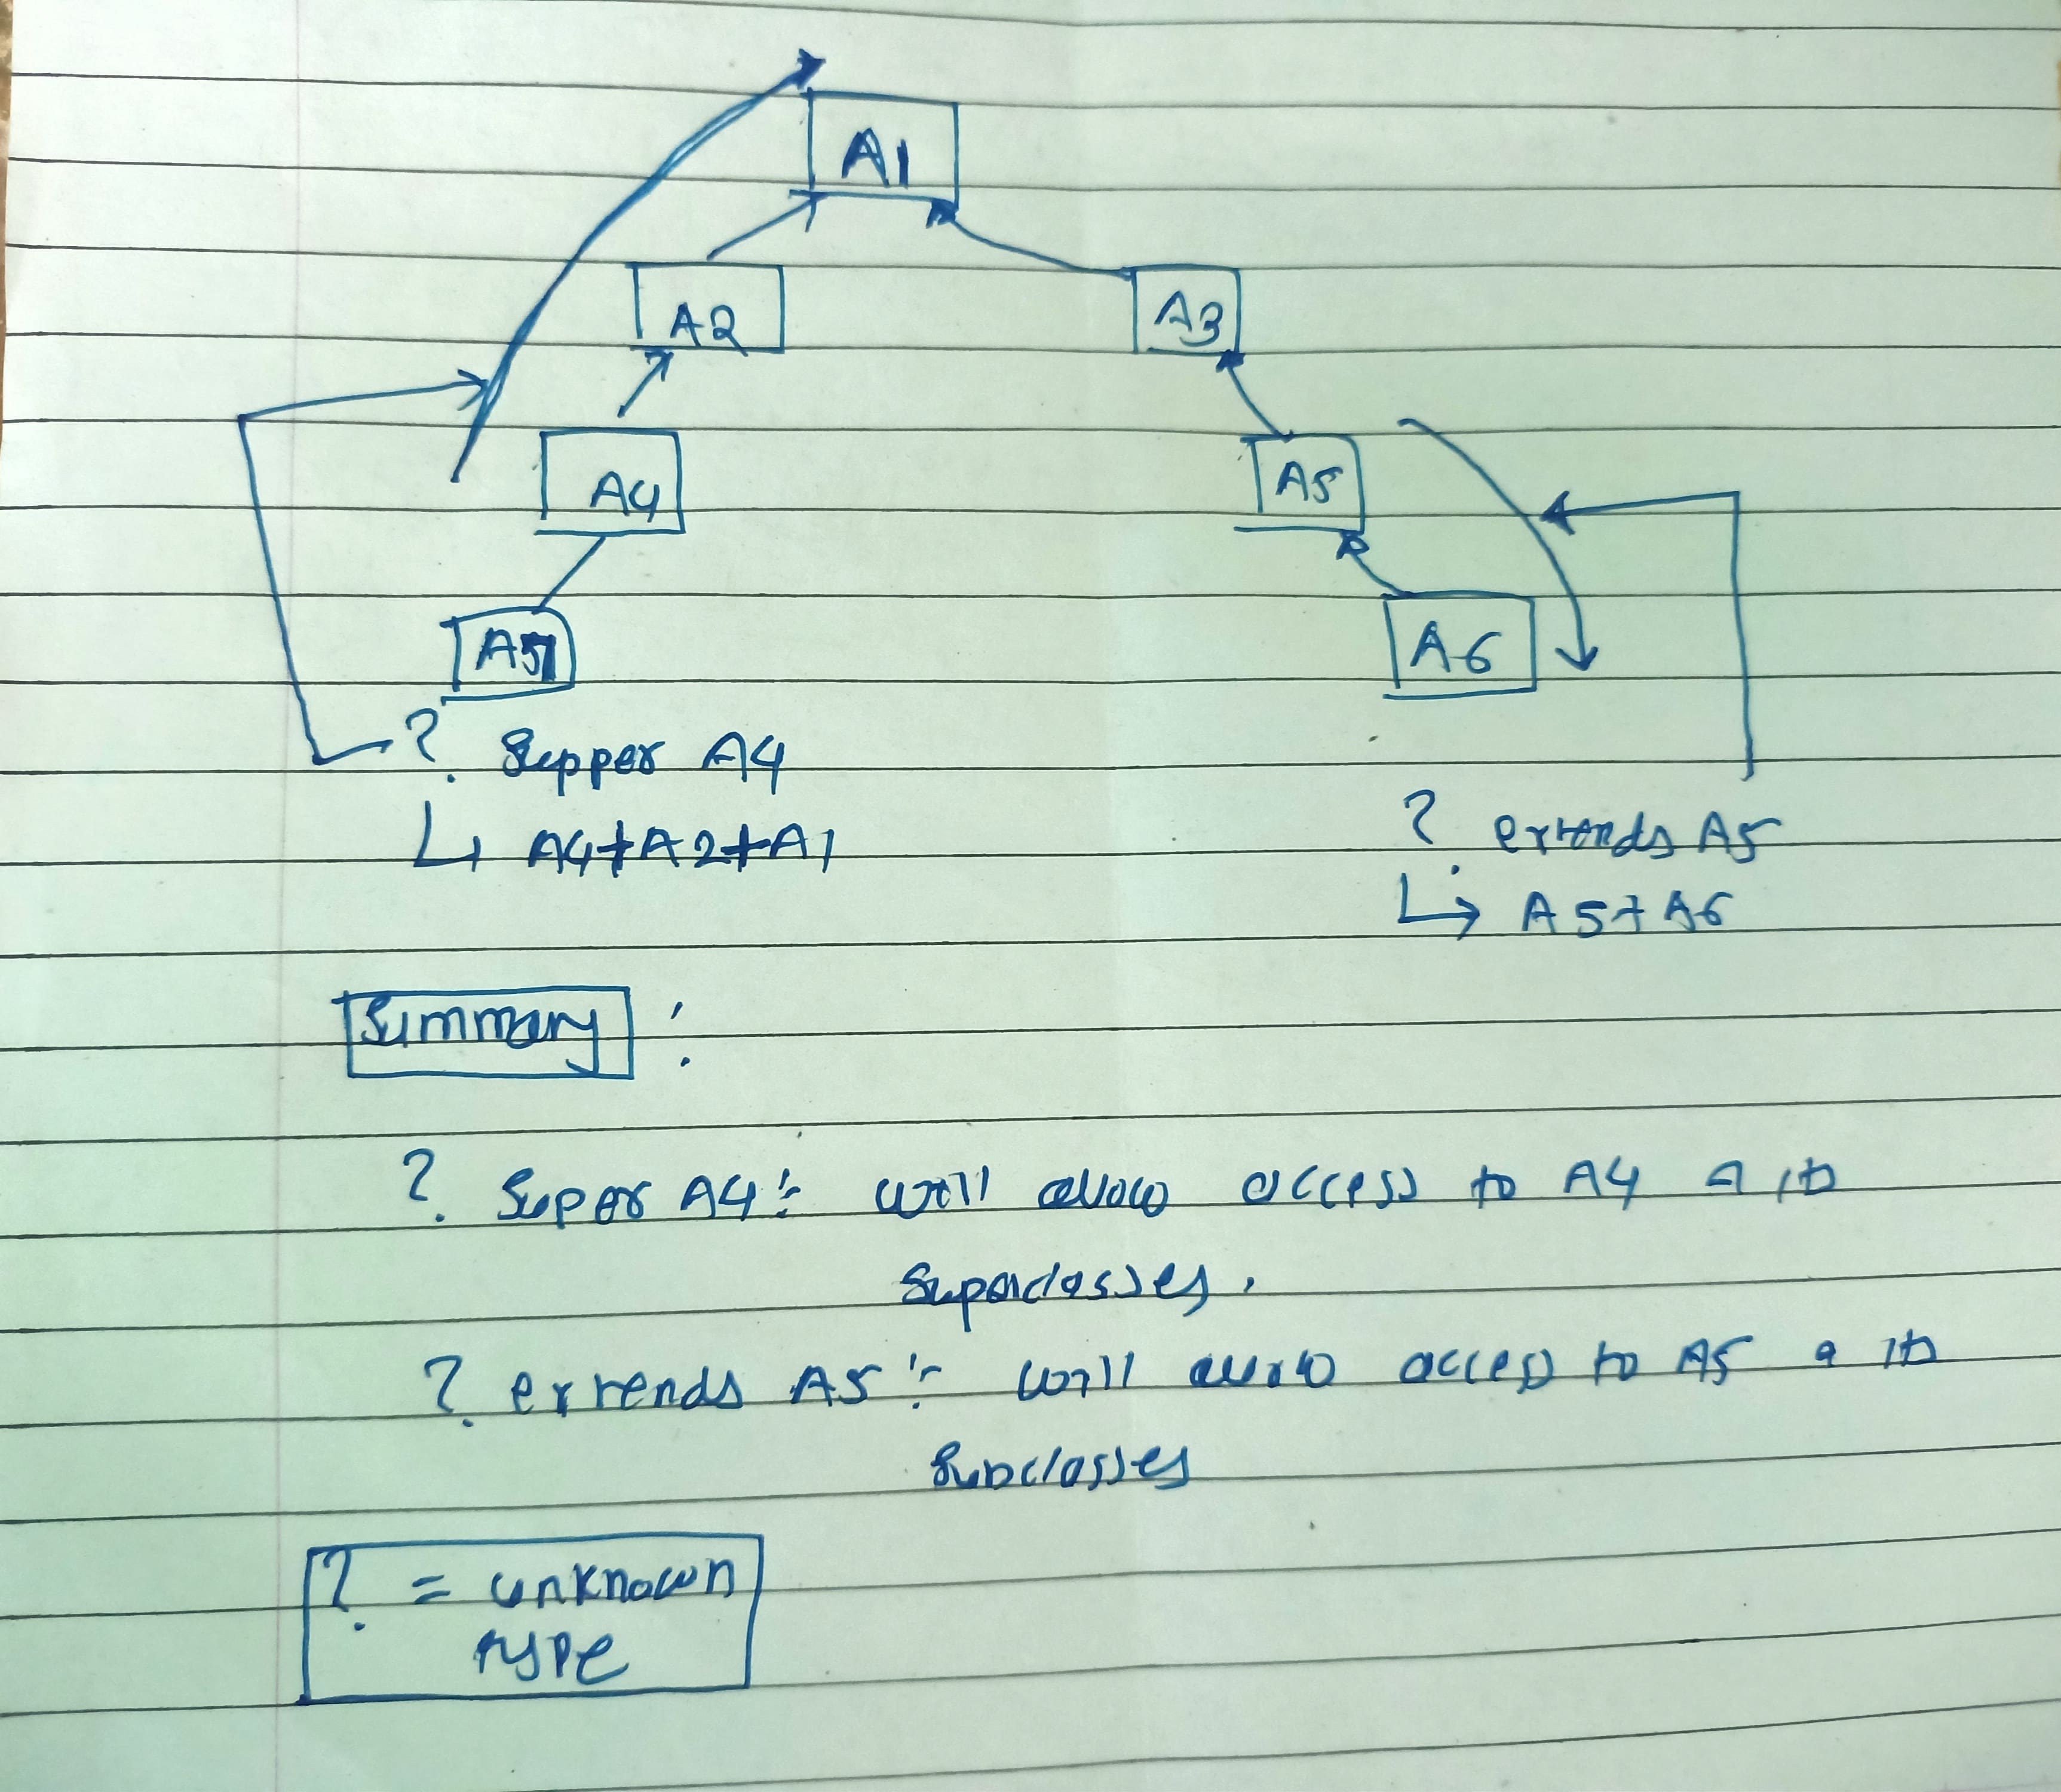 A1
A2
A3
A4
A5
A6
? Supper A4
↳ A4+A2+A1
? extends A5
↳ A5+A6
Summary :
? Super A4 :- will allow access to A4 & its
Superclasses.
? extends A5 :- will allow access to A5 & its
Subclasses
? = unknown
type